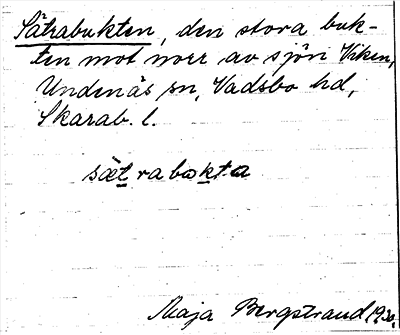 Sätrabukten, den stora buk-
ten mot norr av sjön Viken,
Undenäs sn, Vadsbo hd,
Skarab. l.
sætrabokta
Maja Bergstrand 1930.